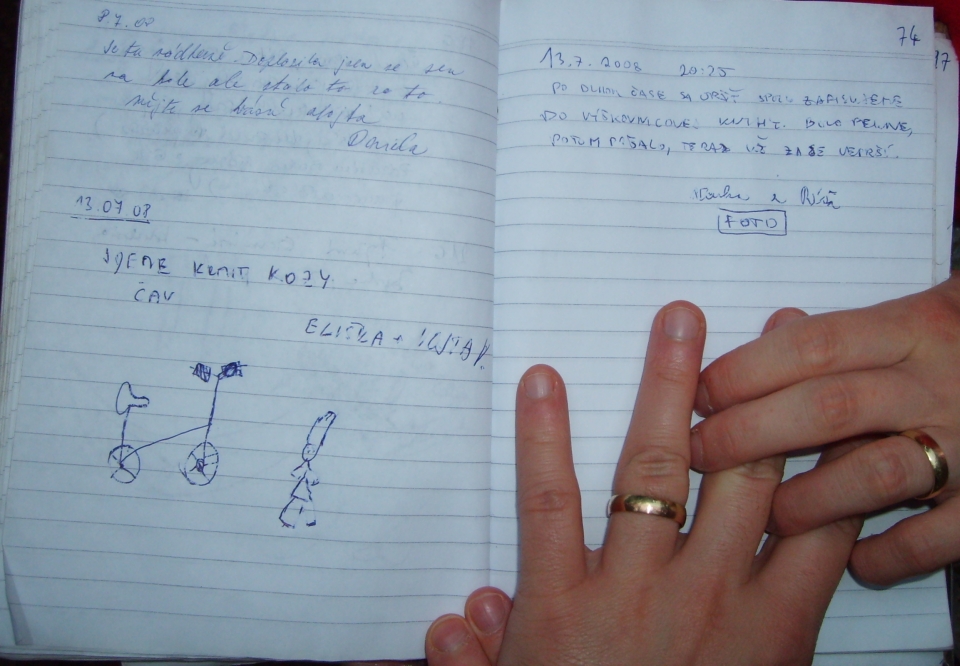 8.7.08
Je tu nádherně. Doplazila jsem se sem
na kole ale stálo to za to.
mějte se krásně ahojky
Daniela
13.07.08
JDEME KRMIT KOZY.
ČAU
ELIŠKA +
74
17
13.7.2008 20:25
PO DLHOM ČASE SA OPÄŤ SPOLU ZAPISUJEME
DO VÝŠKOVNICOVEJ KNIHY. BOLO PEKNE,
POTOM PRŠALO, TERAZ UŽ ZASE NEPRŠÍ.
a
FOTO